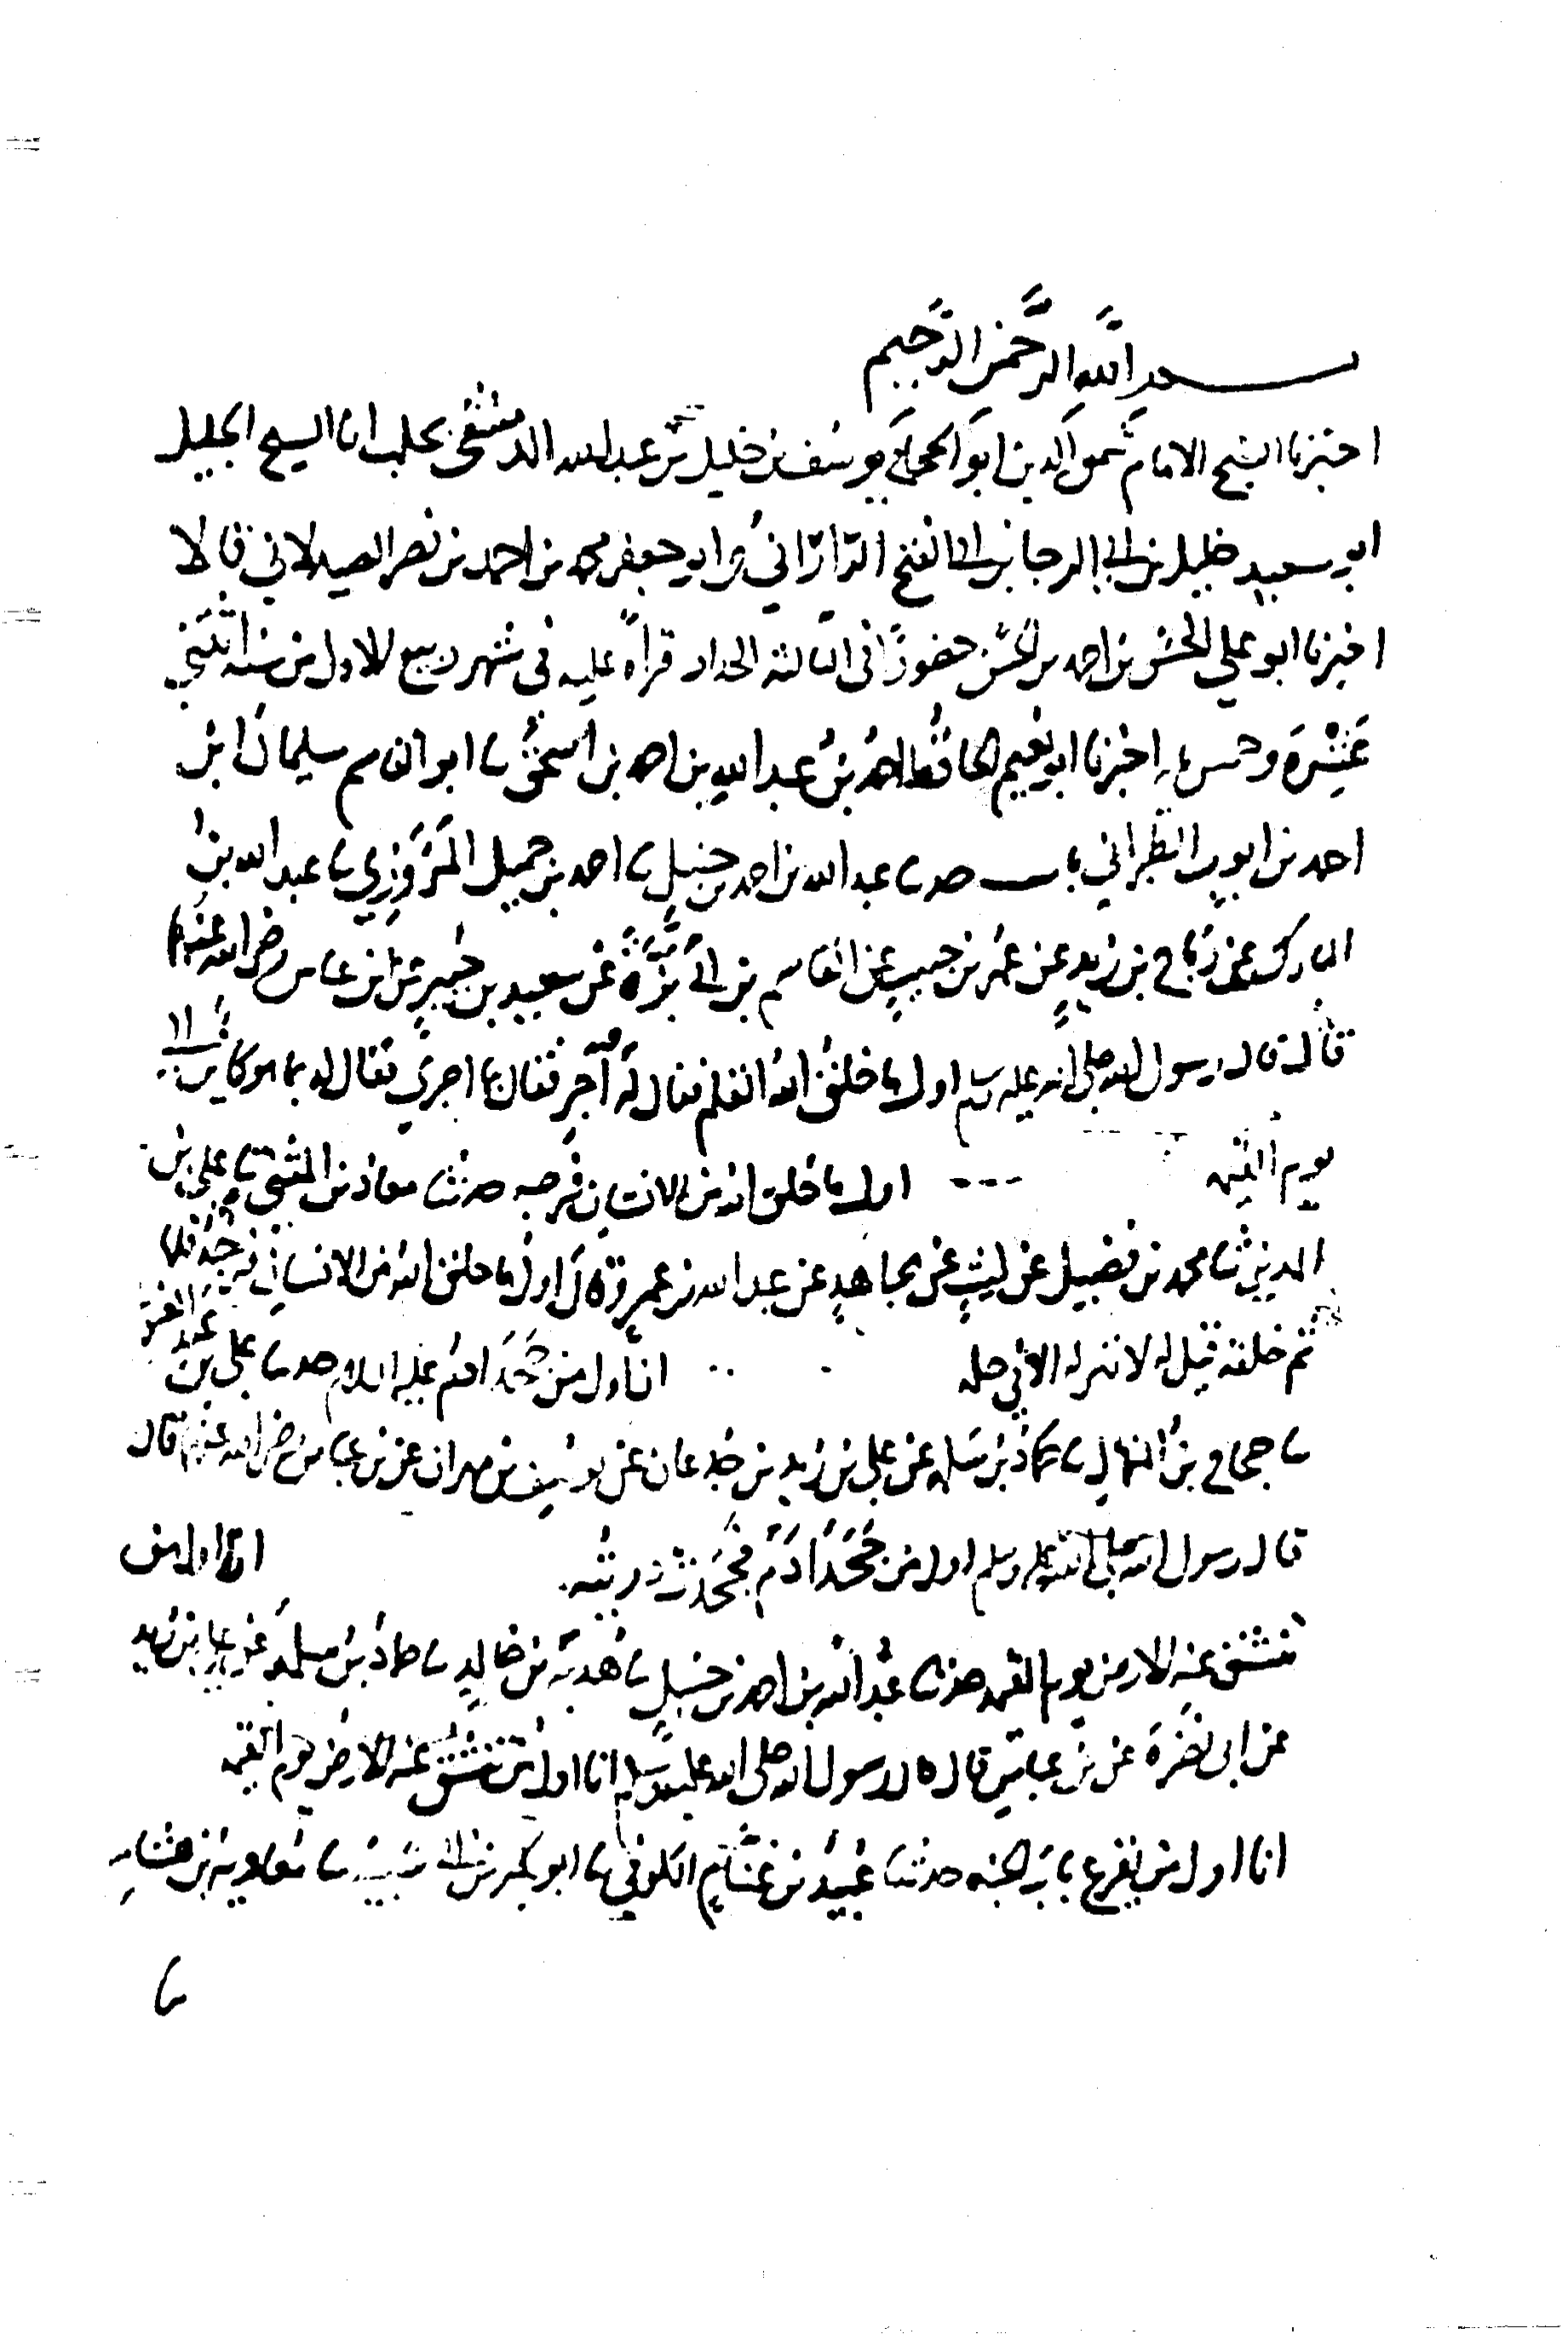 بسم الله الرحمن الرحيم
اخبرنا الشيخ الامام شمس الدين ابو الحجاج يوسف بن خليل بن عبد الله الدمشقي بحلب انا الشيخ الجليل
ابو سعيد خليل بن ابي الرجا بن ابي الفتح الرّارَاني وابو جعفر محمد بن احمد بن نصر الصيدلاني قالا
اخبرنا ابو علي الحسن بن احمد بن الحسن حضورًا في الثالثه الحداد قراةً عليه في شهر ربيع الاول من سنه اثنتي
عَشِرَة وخمس مايه اخبرنا ابو نعيم الحافظ احمد بن عبد الله بن احمد بن اسحق ثنا ابو القاسم سليمان ابن
احمد بن ايوب الطبراني باب حدثنا عبد الله بن احمد بن حنبل ثنا احمد بن جميل المَرْوَزِي ثنا عبد الله بن
المبارك عن رباح بن زيدٍ عن عمر بن حبيبٍ عن القاسم بن ابي بَزَّةَ عن سعيد بن جُبيرٍ عن ابن عباس رضي الله عنهما
قال قال رسول الله صلى الله عليه وسلم اول ما خلق الله القلم فقال له اَجرِ فقال بما اجري فقال له بما هو كاين الى
يوم القيمه اول ما خلق الله من الانسان فرجه حدثنا معاذ بن المثنى ثنا علي بن
المديني ثنا محمد بن فضيل عن ليثٍ عن مجاهدٍ عن عبد الله بن عمرو قال اول ما خلق الله من الانسان فرجه فلما
تم خلقه قيل له لا تنزله الا في حله انّ اول من جَحَدَ ادم عليه السلام حدثنا علي بن عبد العزيز
ثنا حجاج بن المنهال ثنا حماد بن سلمه عن علي بن زيد بن جُدعان عن يوسف بن مهران عن بن عباس رضي الله عنهما قال
قال رسول الله صلى الله عليه وسلم اول من جَحَدَ ادَم فجَحَدَت ذريته انا اول من
تنشق عنه الارض يوم القيمه حدثنا عبد الله بن احمد بن حنبلٍ ثنا هدبة بن خالدٍ ثنا حماد بن سلمه عن علي بن زيد
عن ابي نضرة عن بن عباسٍ قال قال رسول الله صلى الله عليه وسلم انا اول من تنشقّ عنه الارض يوم القيمه
انا اول من يقرع باب الجنه حدثنا عُبيد بن غنّام الكوفي ثنا ابو بكر بن ابي شَيبَة ثنا معاوية بن هشام
ثنا